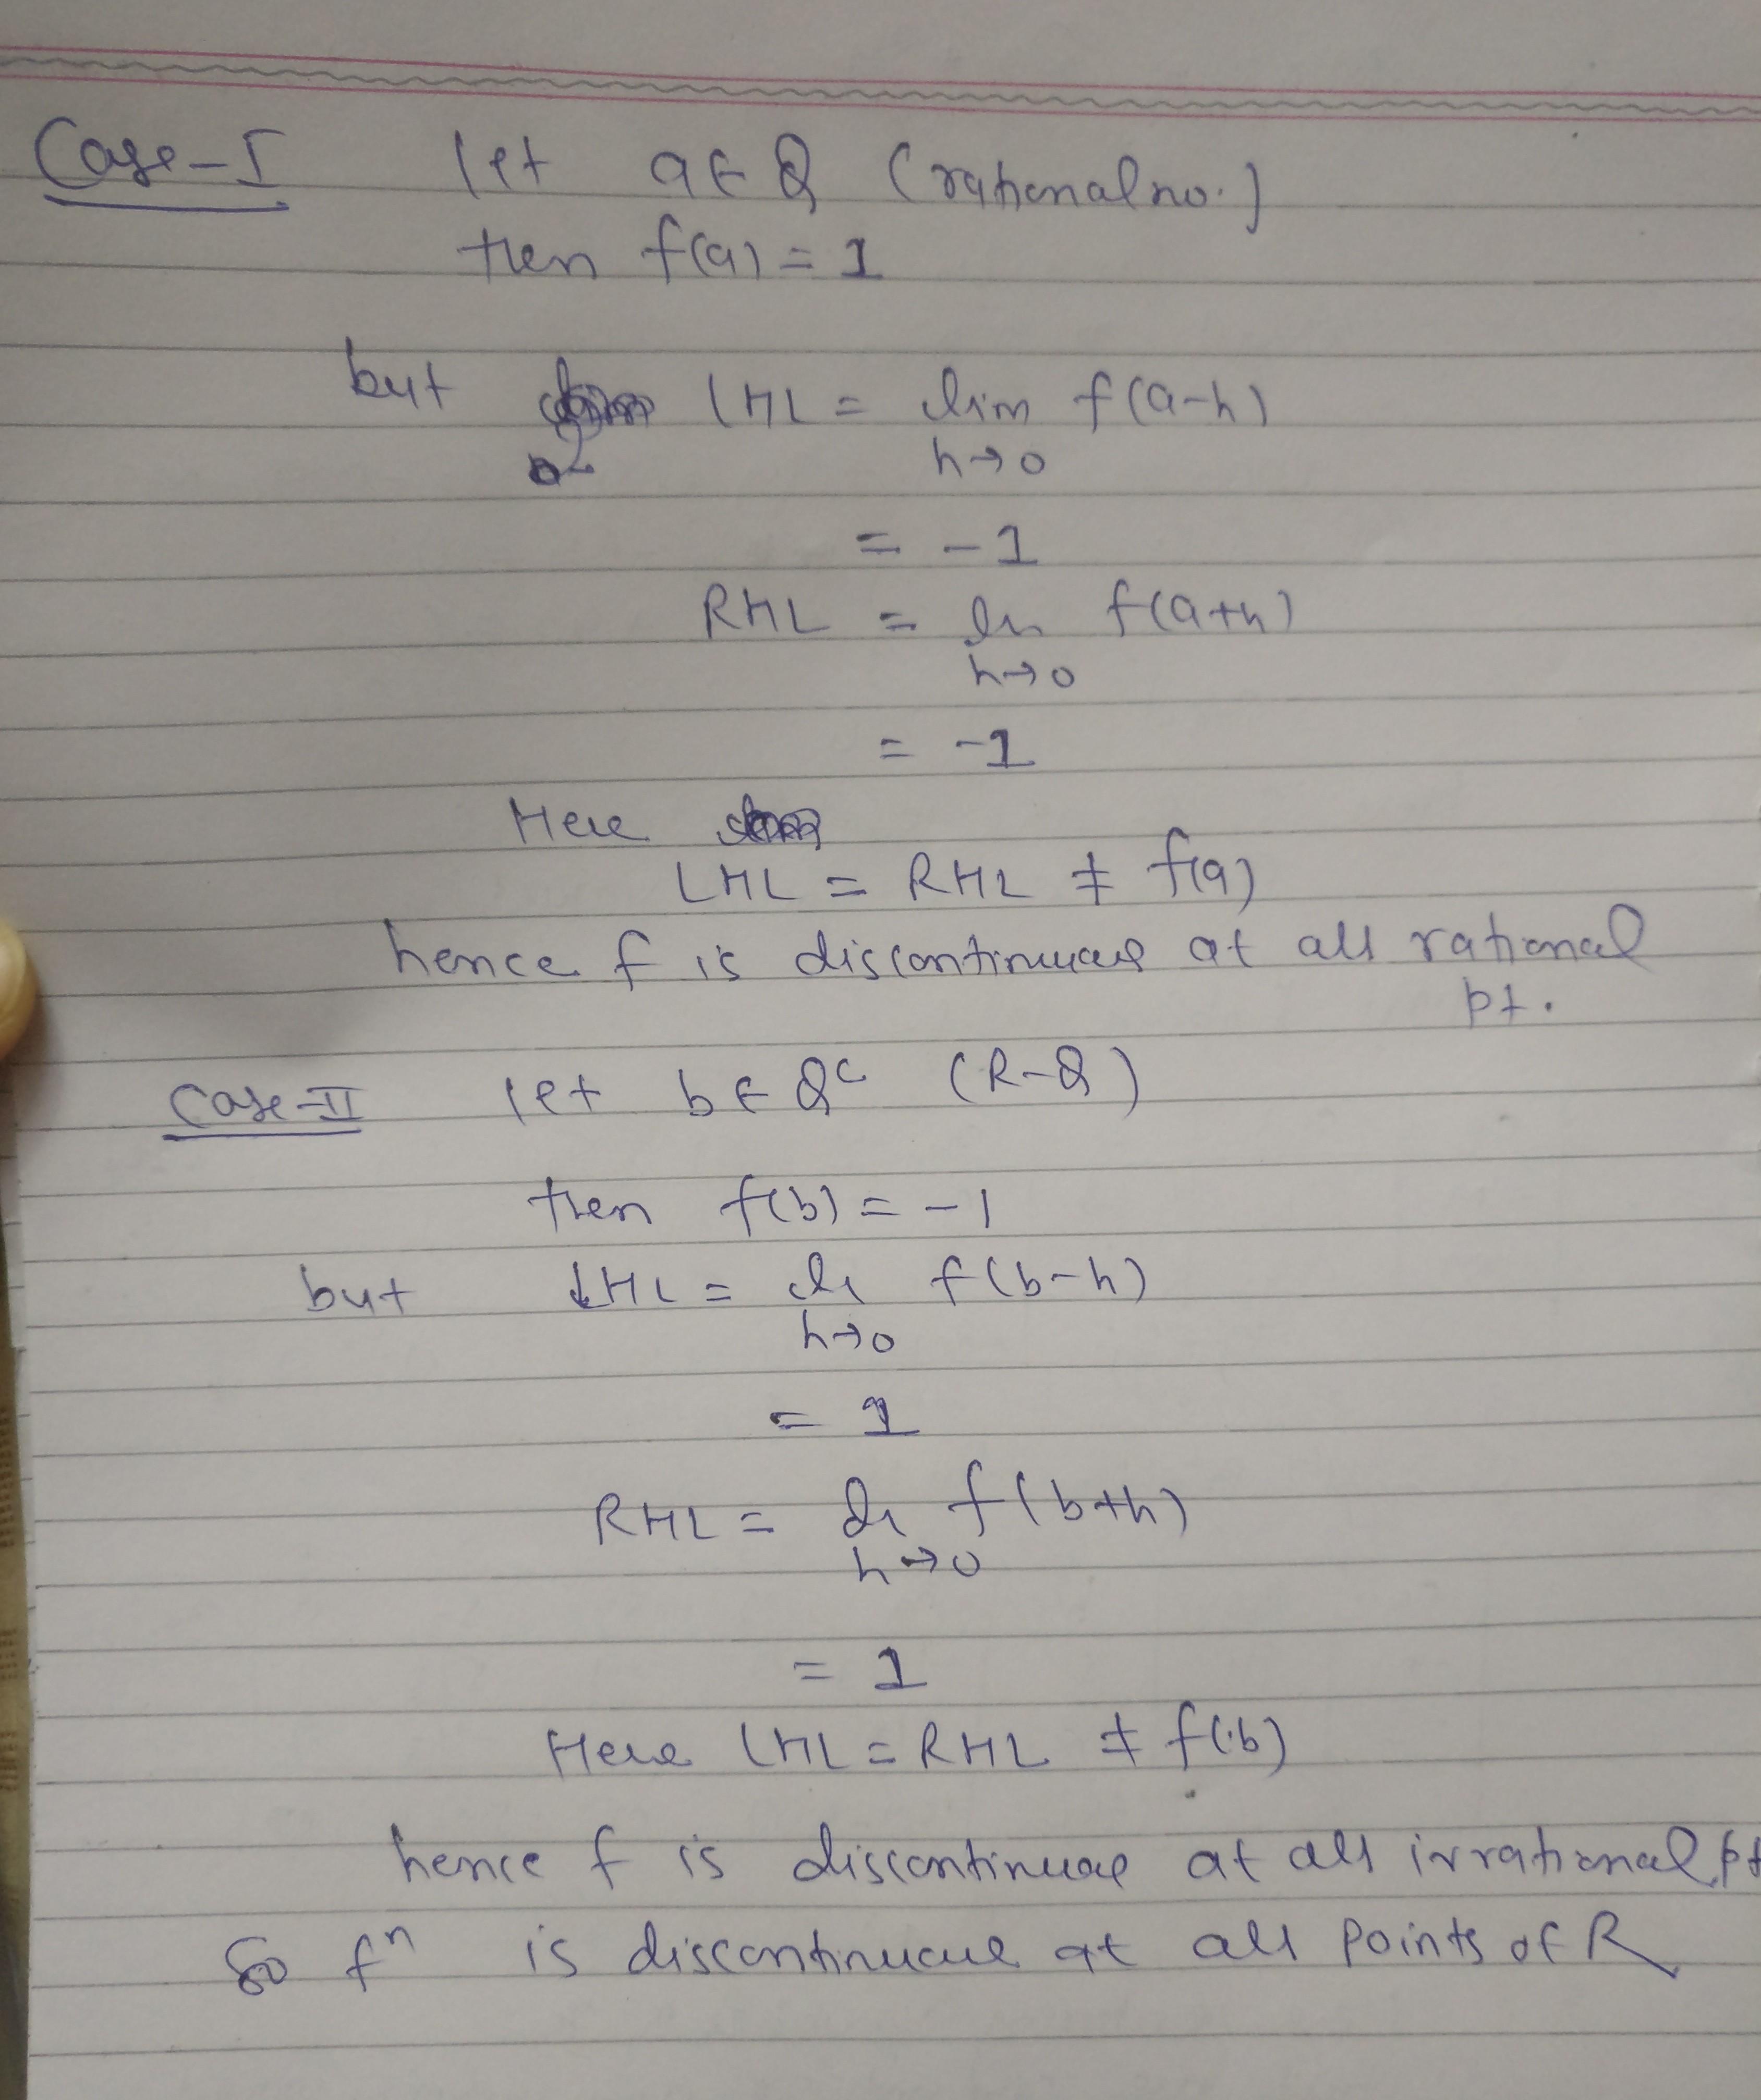 Case-I let a ∈ Q (rational no.)
then f(a) = 1
but LHL = lim f(a-h)
h→0
= -1
RHL = lim f(a+h)
h→0
= -1
Here
LHL = RHL ≠ f(a)
hence f is discontinuous at all rational
pt.
Case-II let b ∈ Qᶜ (R-Q)
then f(b) = -1
but LHL = lim f(b-h)
h→0
= 1
RHL = lim f(b+h)
h→0
= 1
Here LHL = RHL ≠ f(b)
hence f is discontinuous at all irrational pt
So fⁿ is discontinuous at all points of R